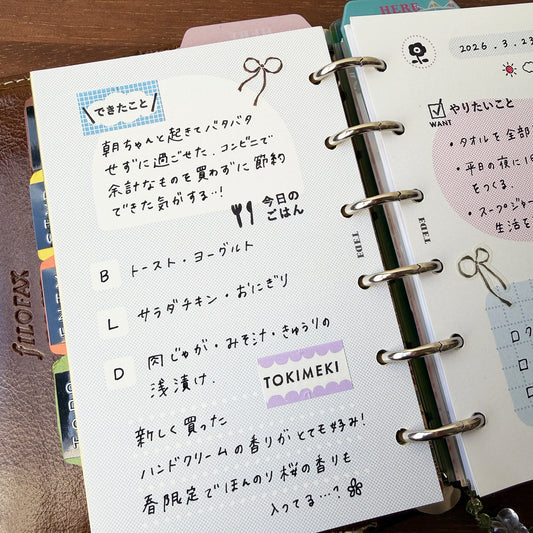 できたこと
朝ちゃんと起きてバタバタ
せずに過ごせた。コンビニで
余計なものを買わずに節約
できた気がする…!
今日の
ごはん
B トースト・ヨーグルト
L サラダチキン・おにぎり
D 肉じゃが・みそ汁・きゅうりの
浅漬け.
TOKIMEKI
新しく買った
ハンドクリームの香りがとても好み!
春限定でほんのり桜の香りも
入ってる…?
EDiT
FILOFAX
HERE
2026.3.23
やりたいこと
WANT
・タオルを全部
・平日の夜に1
をつくる.
・スープジャー
生活を
EDiT